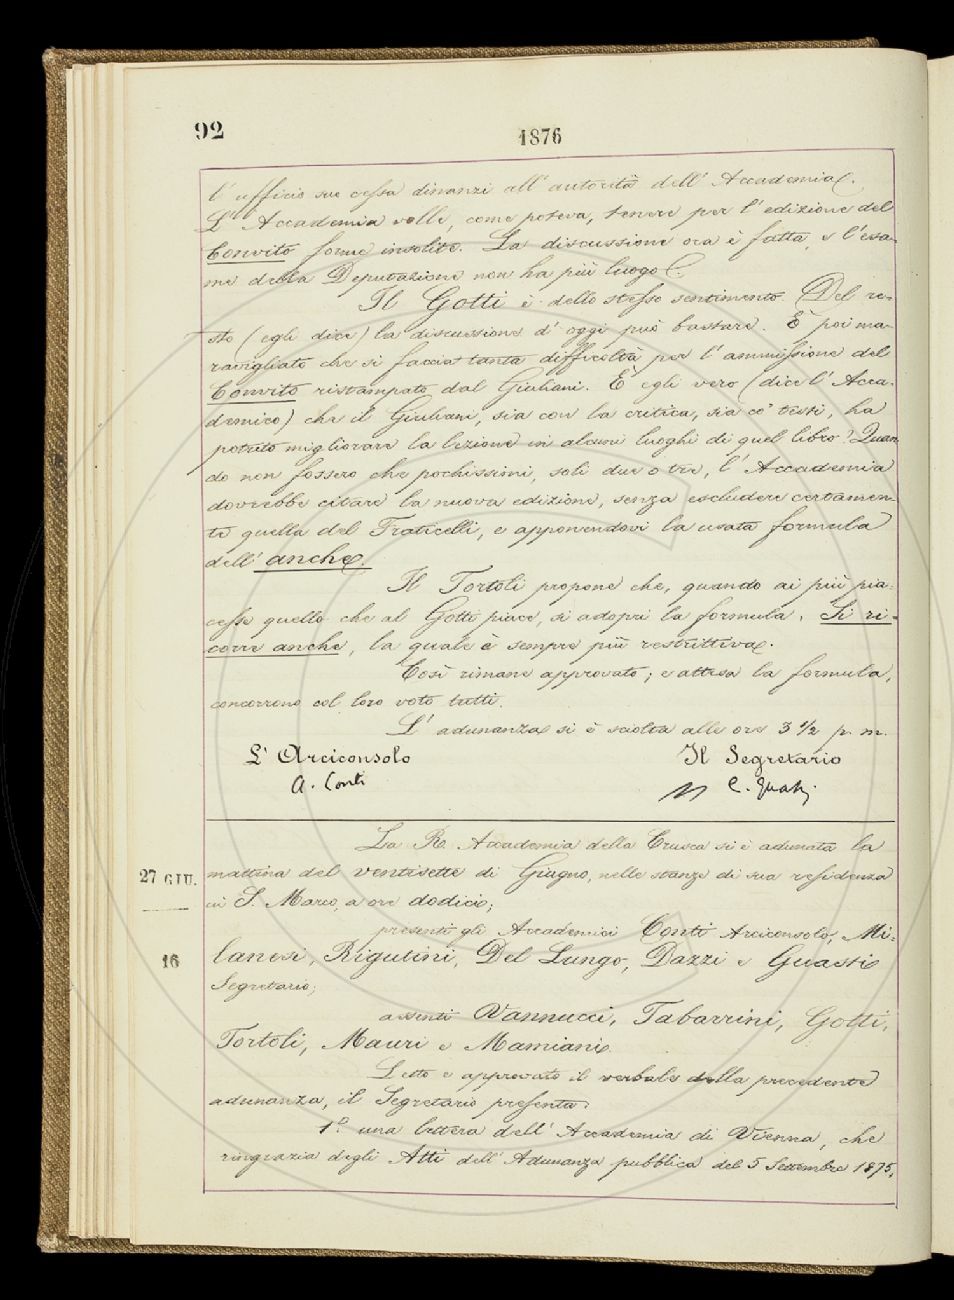 92
1876
l'ufficio suo cessa dinanzi all'autorità dell'Accademia.
L'Accademia volle, come poteva, tenere per l'edizione del
Convito forme insolite. La discussione ora è fatta, e l'esa-
me della Deputazione non ha più luogo.
Il Gotti è dello stesso sentimento. Del re-
sto (egli dice) la discussione d'oggi può bastare. È poi ma-
ravigliato che si faccia tanta difficoltà per l'ammissione del
Convito ristampato dal Giuliani. È egli vero (dice l'Acca-
demico) che il Giuliani, sia con la critica, sia co' testi, ha
potuto migliorare la lezione in alcuni luoghi di quel libro? Quan
do non fossero che pochissimi, soli due o tre, l'Accademia
dovrebbe citare la nuova edizione, senza escludere certamen-
te quella del Fraticelli, e apponendovi la usata formula
dell'anche.
Il Tortoli propone che, quando ai più pia-
cesse quello che al Gotti piace, si adopri la formula, Si ri-
corre anche, la quale è sempre più restrittiva.
Così rimane approvato; e attesa la formula,
concorrono col loro voto tutti.
L'adunanza si è sciolta alle ore 3 1/2 p. m.
L'Arciconsolo
Il Segretario
A. Conti
C. Guasti
La R. Accademia della Crusca si è adunata la
27 GIU.
mattina del ventisette di Giugno, nelle stanze di sua residenza
in S. Marco, a ore dodici;
presenti gli Accademici Conti Arciconsolo, Mi-
16
lanesi, Rigutini, Del Lungo, Dazzi e Guasti
Segretario;
assenti Vannucci, Tabarrini, Gotti,
Tortoli, Mauri e Mamiani.
Letto e approvato il verbale della precedente
adunanza, il Segretario presenta:
1.º una lettera dell'Accademia di Vienna, che
ringrazia degli Atti dell'Adunanza pubblica del 5 Settembre 1875,